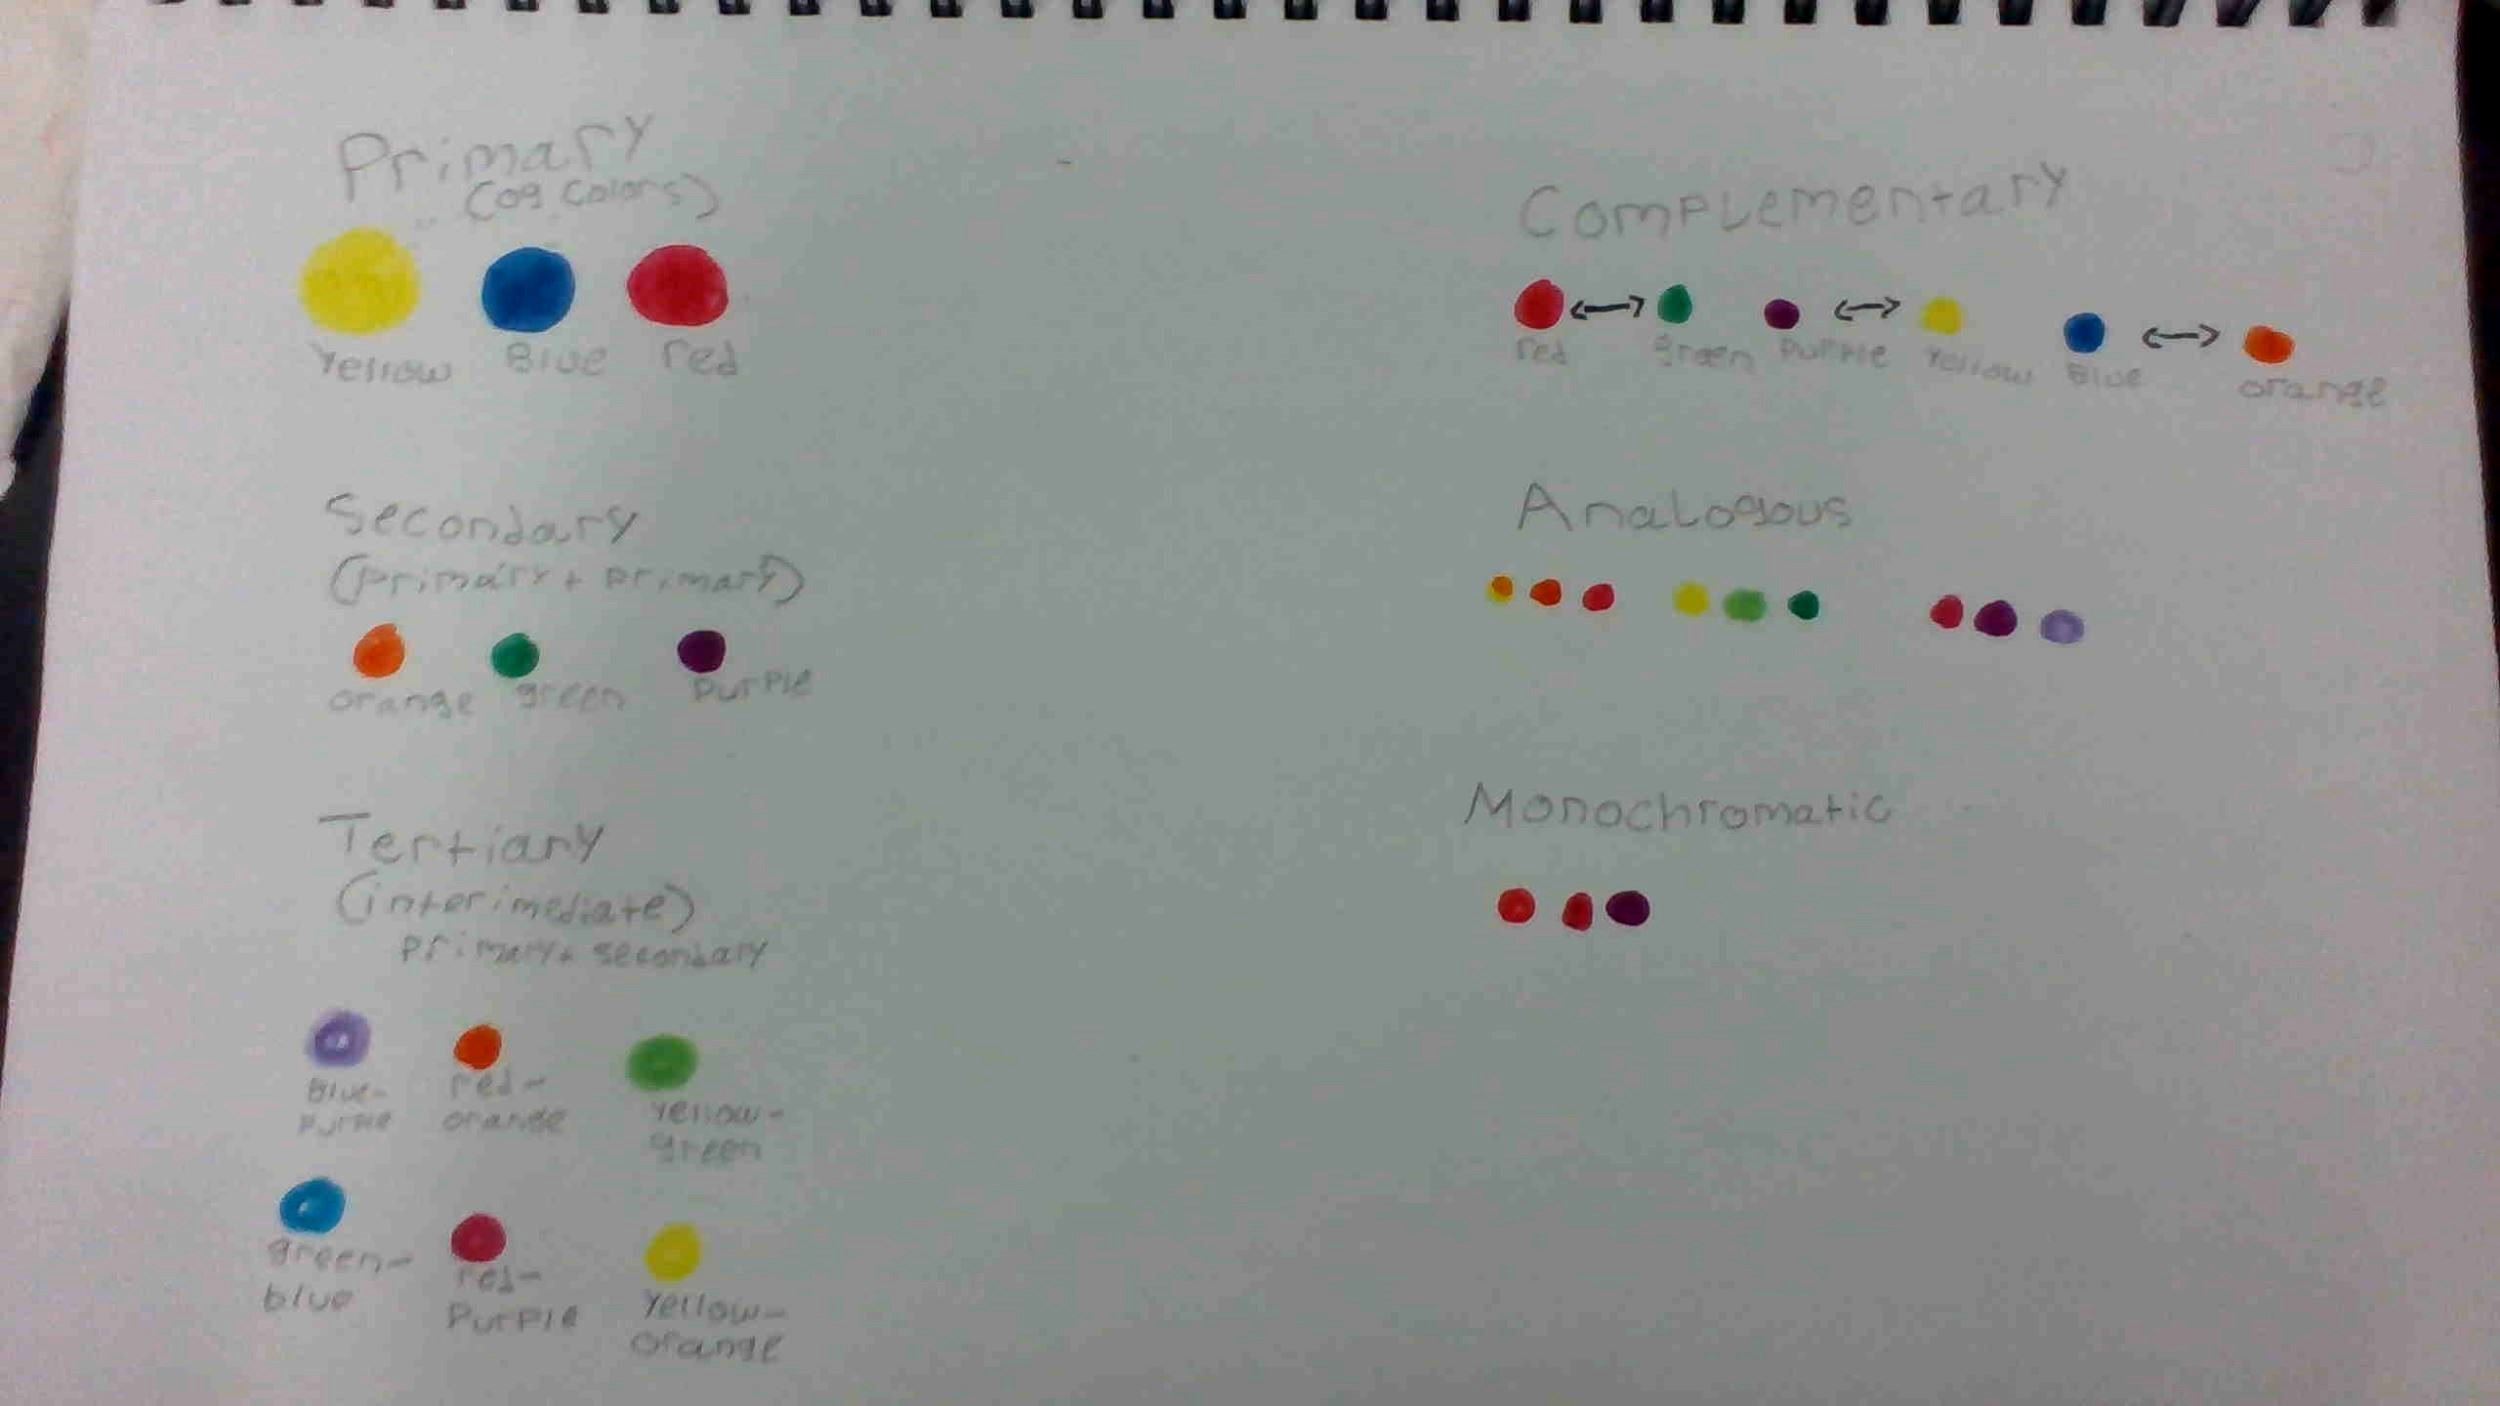 Primary
(og colors)
Yellow Blue red
Secondary
(primary + primary)
orange green purple
Tertiary
(interimediate)
primary + secondary
Blue-
purple
red-
orange
yellow-
green
green-
blue
red-
purple
yellow-
orange
Complementary
red green purple yellow Blue orange
Analogous
Monochromatic